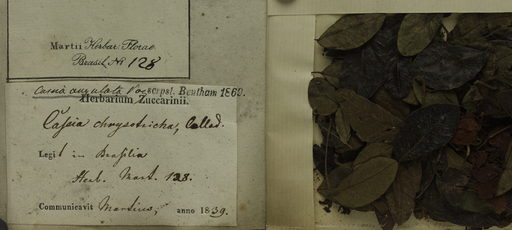 Martii Herbar. Florae
Brasil. No 128
Cassia angulata Vog. scrpst. Bentham 1869.
Herbarium Zuccarinii.
Cassia chrysotricha, Collad.
Legit in Brasilia
Herb. Mart. 128.
Communicavit Martius, anno 1839.